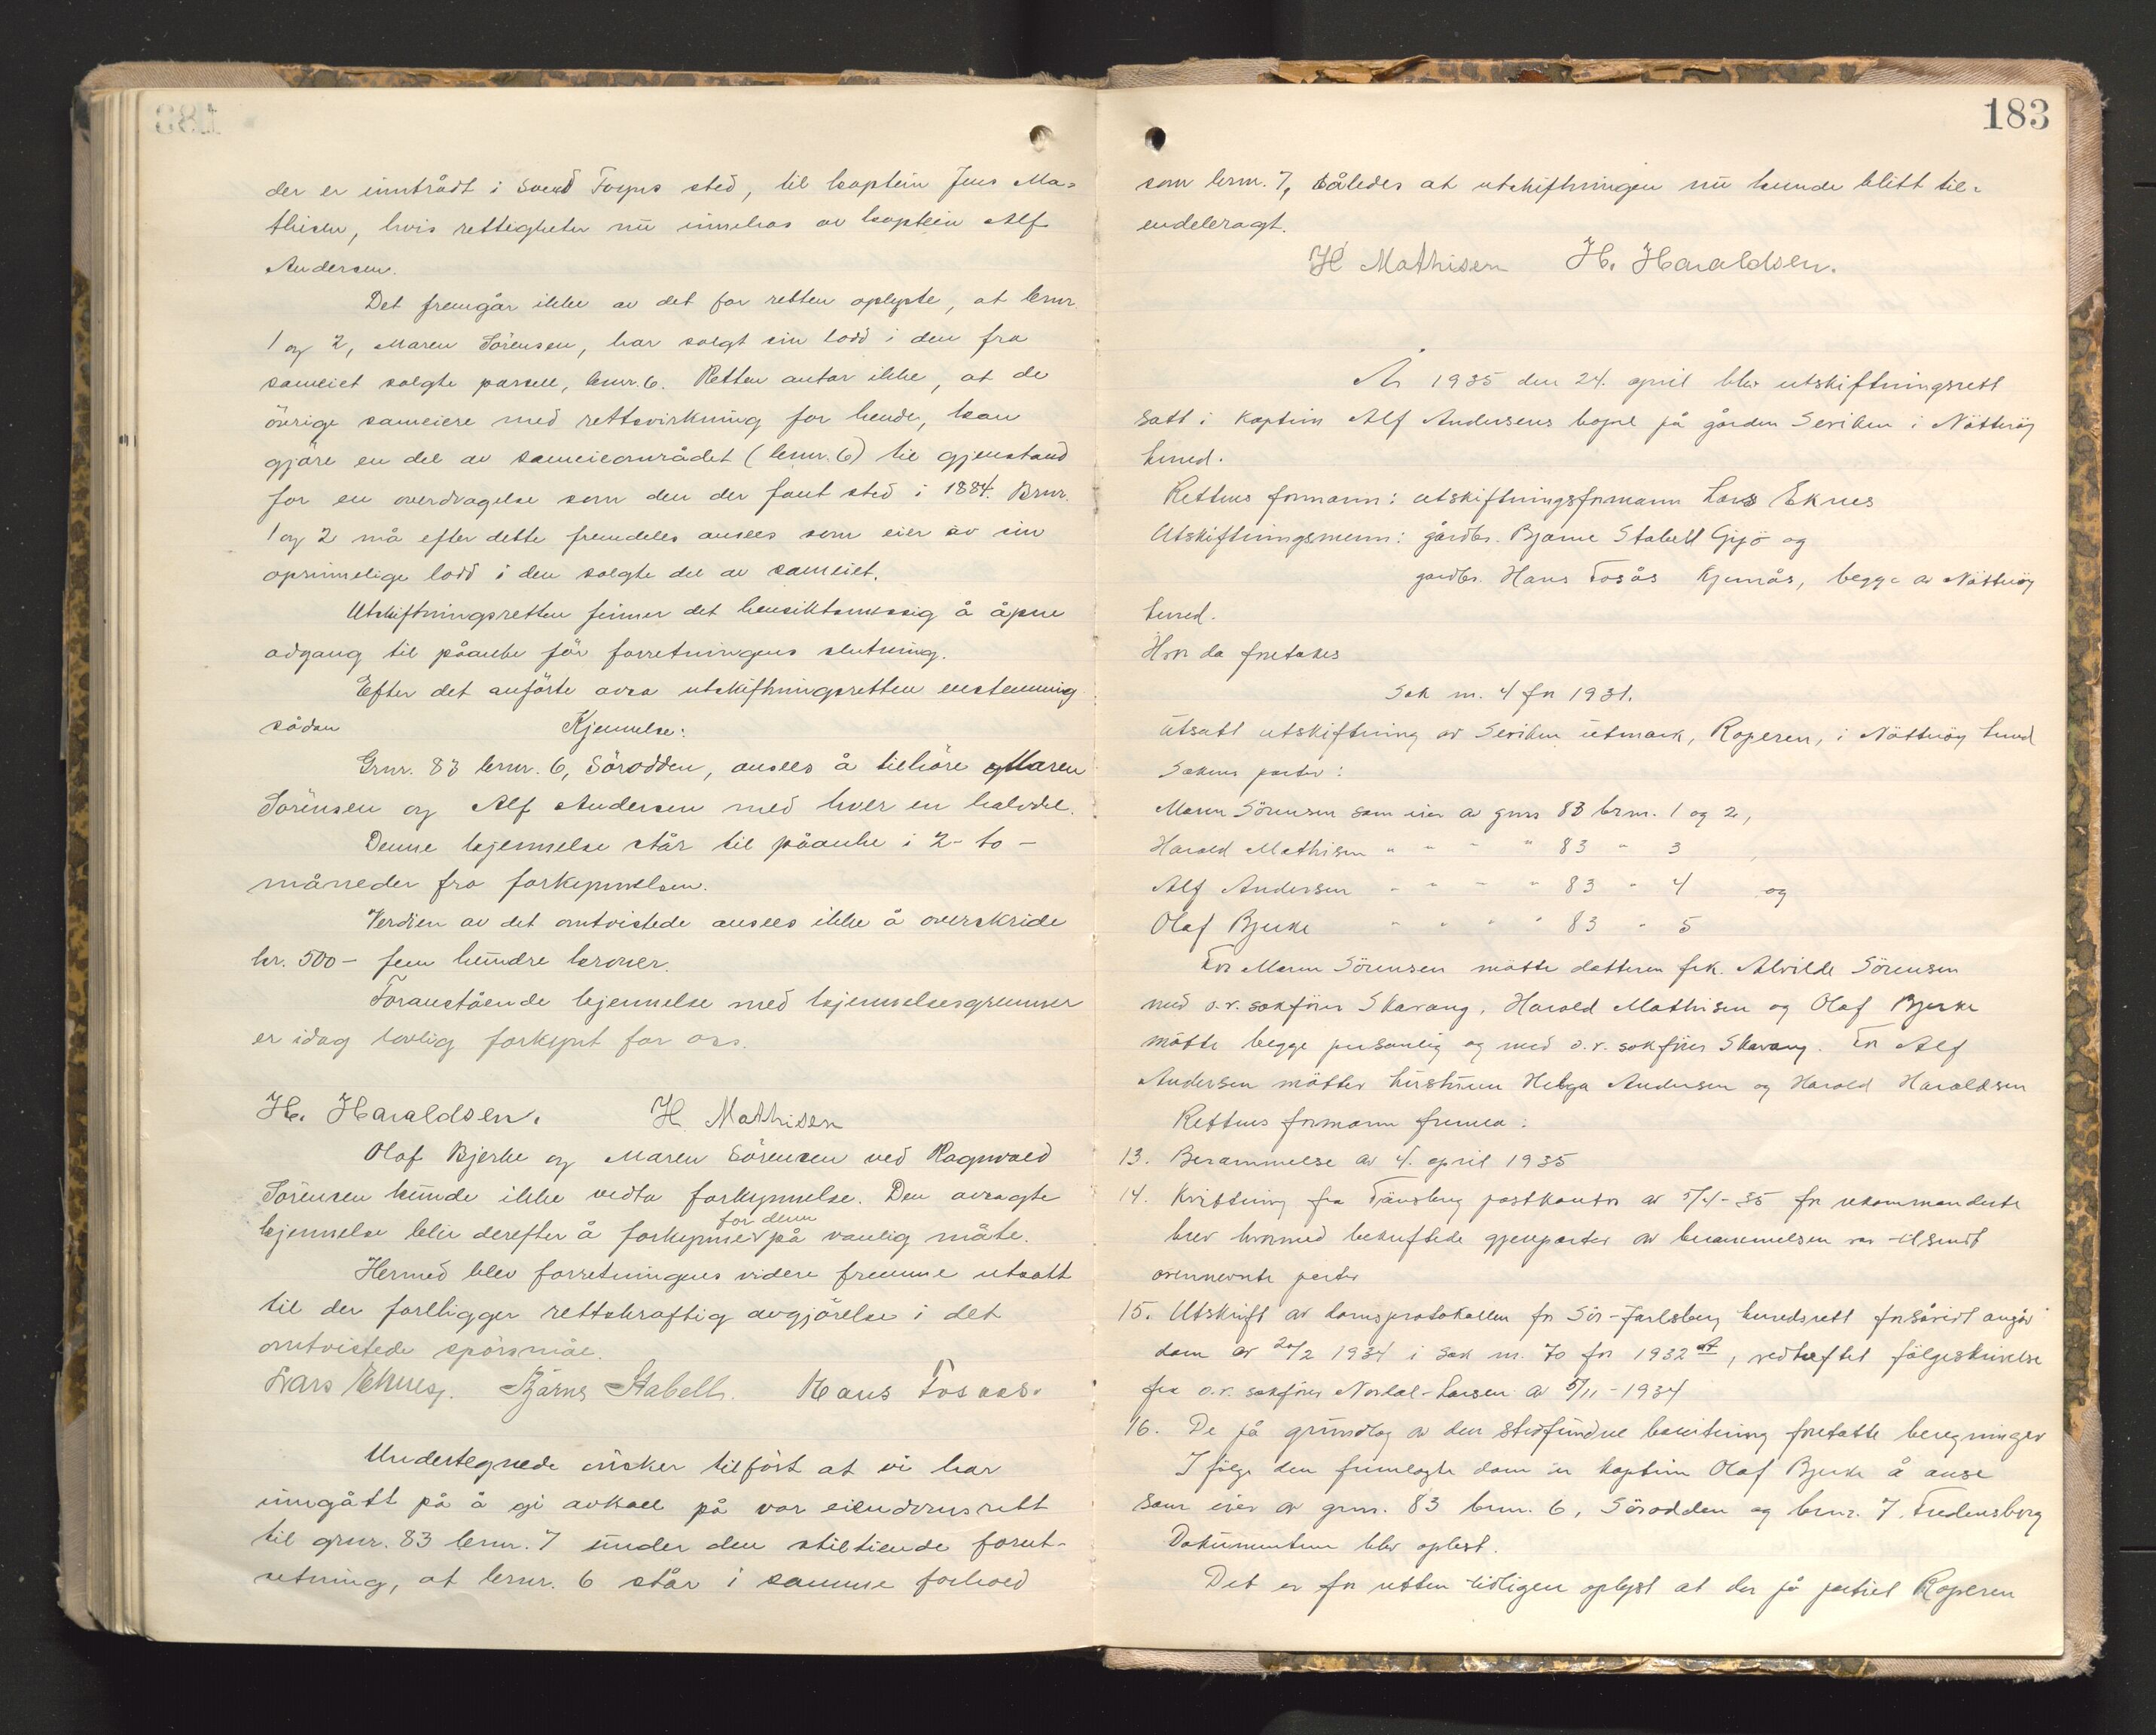 der er inntrådt i Svend Foyns sted, til kaptein Jens Ma=
thisen, hvis rettigheter nu innehas av kaptein Alf
Andersen.
Det fremgår ikke av det for retten oplyste, at brnr.
1 og 2, Maren Sörensen, har solgt sin lodd i den fra
sameiet solgte parsell, brnr. 6. Retten antar ikke, at de
övrige sameiere med rettsvirkning for hende, kan
gjöre en del av sameieområdet (brnr. 6) til gjenstand
for en overdragelse som den der fant sted i 1884. Brnr.
1 og 2 må efter dette fremdeles ansees som eier av sin
oprinnelige lodd i den solgte del av sameiet.
Utskiftningsretten finner det hensiktsmessig å åpne
adgang til påanke för forretningens slutning.
Efter det anförte avsa utskiftningsretten enstemmig
sådan Kjennelse:
Grnr. 83 brnr. 6, Sörodden, ansees å tilhöre Maren
Sörensen og Alf Andersen med hver en halvdel.
Denne kjennelse står til påanke i 2 - to -
måneder fra forkynnelsen.
Verdien av det omtvistede ansees ikke å overskride
kr. 500 - fem hundre kroner.
Foranstående kjennelse med kjennelsesgrunner
er idag lovlig forkynt for oss.
H. Haraldsen. H. Mathisen
Olaf Bjerke og Maren Sörensen ved Ragnvald
Sörensen kunde ikke vedta forkynnelse. Den avsagte
kjennelse blir derefter å forkynne for dem på vanlig måte.
Hermed blev forretningens videre fremme utsatt
til der forligger rettskraftig avgjörelse i det
omtvistede spörsmål.
Lars Eknes. Bjarne Stabell. Hans Fosaas.
Undertegnede önsker tilfört at vi har
inngått på å gi avkall på vor eiendomsrett
til grnr. 83 brnr. 7 under den stiltiende forut-
setning, at brnr. 6 står i samme forhold
183
som brnr. 7, således at utskiftningen nu kunde blitt til=
endebragt.
H Mathisen H. Haraldsen.
År 1935 den 24. april blev utskiftningsrett
satt i kaptein Alf Andersens bopel på gården Seviken i Nötteröy
herred.
Rettens formann: utskiftningsformann Lars Eknes
Utskiftningsmenn: gårdbr. Bjarne Stabell Gipö og
gardbr. Hans Fosås Kjernås, begge av Nötteröy
herred.
Hvor da foretokes
Sak nr. 4 for 1931.
Utsatt utskiftning av Seviken utmark, Roperen, i Nötteröy herred
Sakens parter:
Maren Sörensen som eier av gnr. 83 brnr. 1 og 2,
Harald Mathisen " " " " 83 " 3 ,
Alf Andersen " " " " 83 " 4 og
Olaf Bjerke " " " " 83 " 5
For Maren Sörensen mötte datteren frk. Alvilde Sörensen
med o.r. sakförer Skavang. Harald Mathisen og Olaf Bjerke
mötte begge personlig og med o.r. sakförer Skavang. For Alf
Andersen mötter hustruen Helga Andersen og Harald Haraldsen
Rettens formann fremla:
13. Berammelse av 4. april 1935
14. Kvittering fra Tönsberg postkontor av 5/4-35 for rekommanderte
brev hvormed bekreftede gjenparter av berammelsen var tilsendt
ovennevnte parter
15. Utskrift av domsprotokollen for Sör-Jarlsberg herredsrett forsåvidt angår
dom av 20/2 1934 i sak nr. 70 for 1932 , vedheftet fölgeskrivelse
fra o.r. sakförer Nordal-Larsen av 5/11-1934
16. De på grunnlag av den stedfundne bonitering foretatte beregninger
I fölge den fremlagte dom er kaptein Olaf Bjerke å anse
som eier av gnr. 83 brnr. 6, Sörodden og brnr. 7. Fredensborg
Dokumentene blev oplest.
Det er for retten tidligere oplyst at der på partiet Roperen